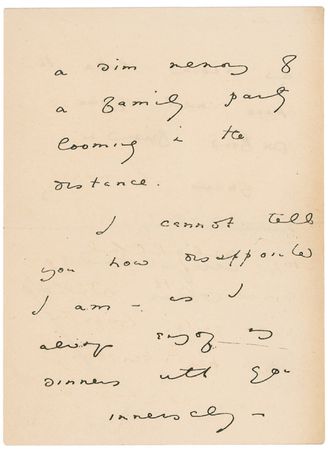 a dim memory of
a family party
looming in the
distance.
I cannot tell
you how disappointed
I am - as I
always enjoy my
dinners with you
immensely -